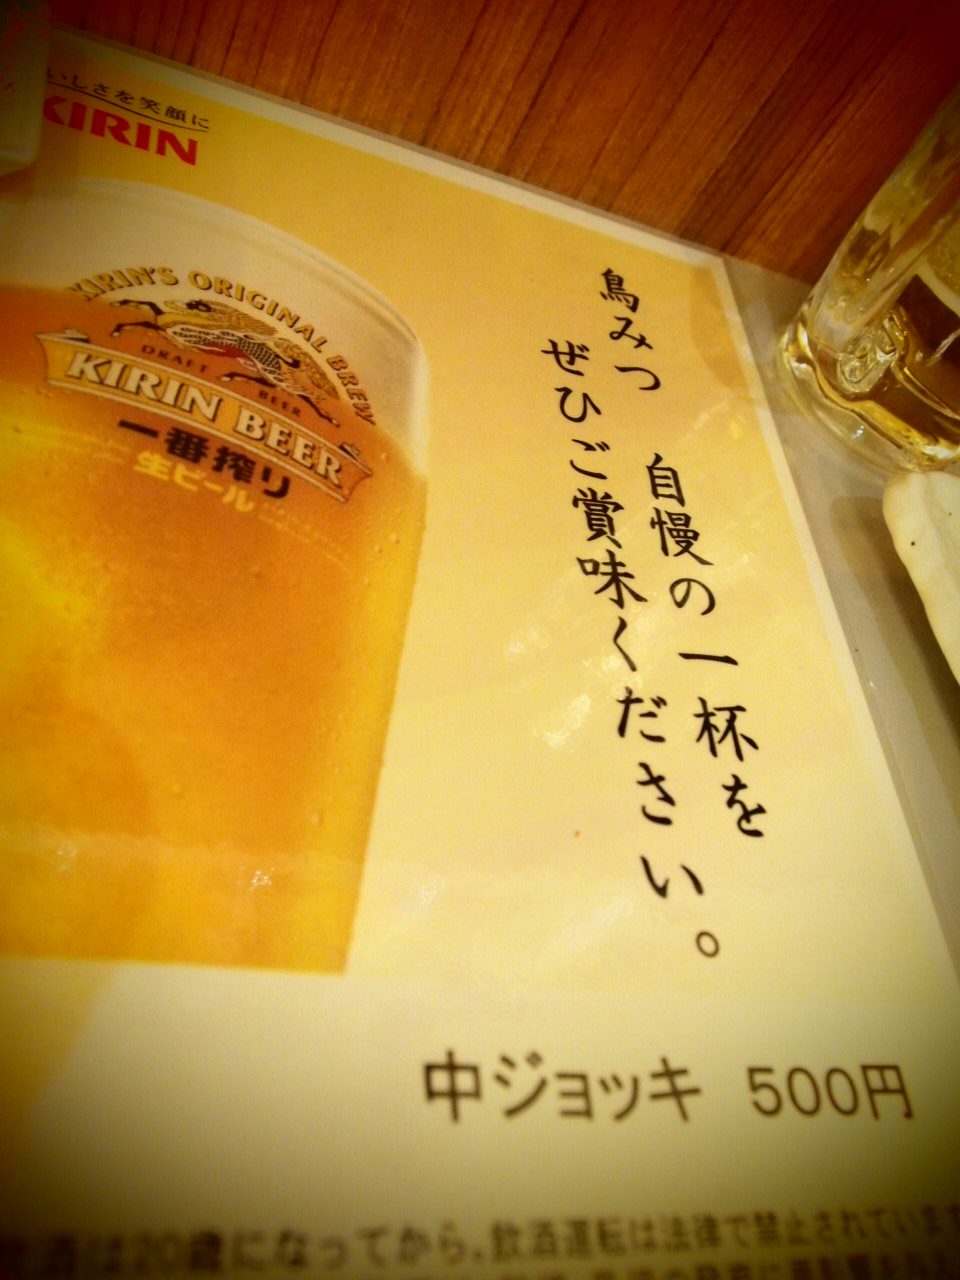 いしさを笑顔に
KIRIN
KIRIN'S ORIGINAL BREW
DRAFT BEER
KIRIN BEER
一番搾り
生ビール
鳥みつ 自慢の一杯を
ぜひご賞味ください。
中ジョッキ 500円
酒は20歳になってから。飲酒運転は法律で禁止されています